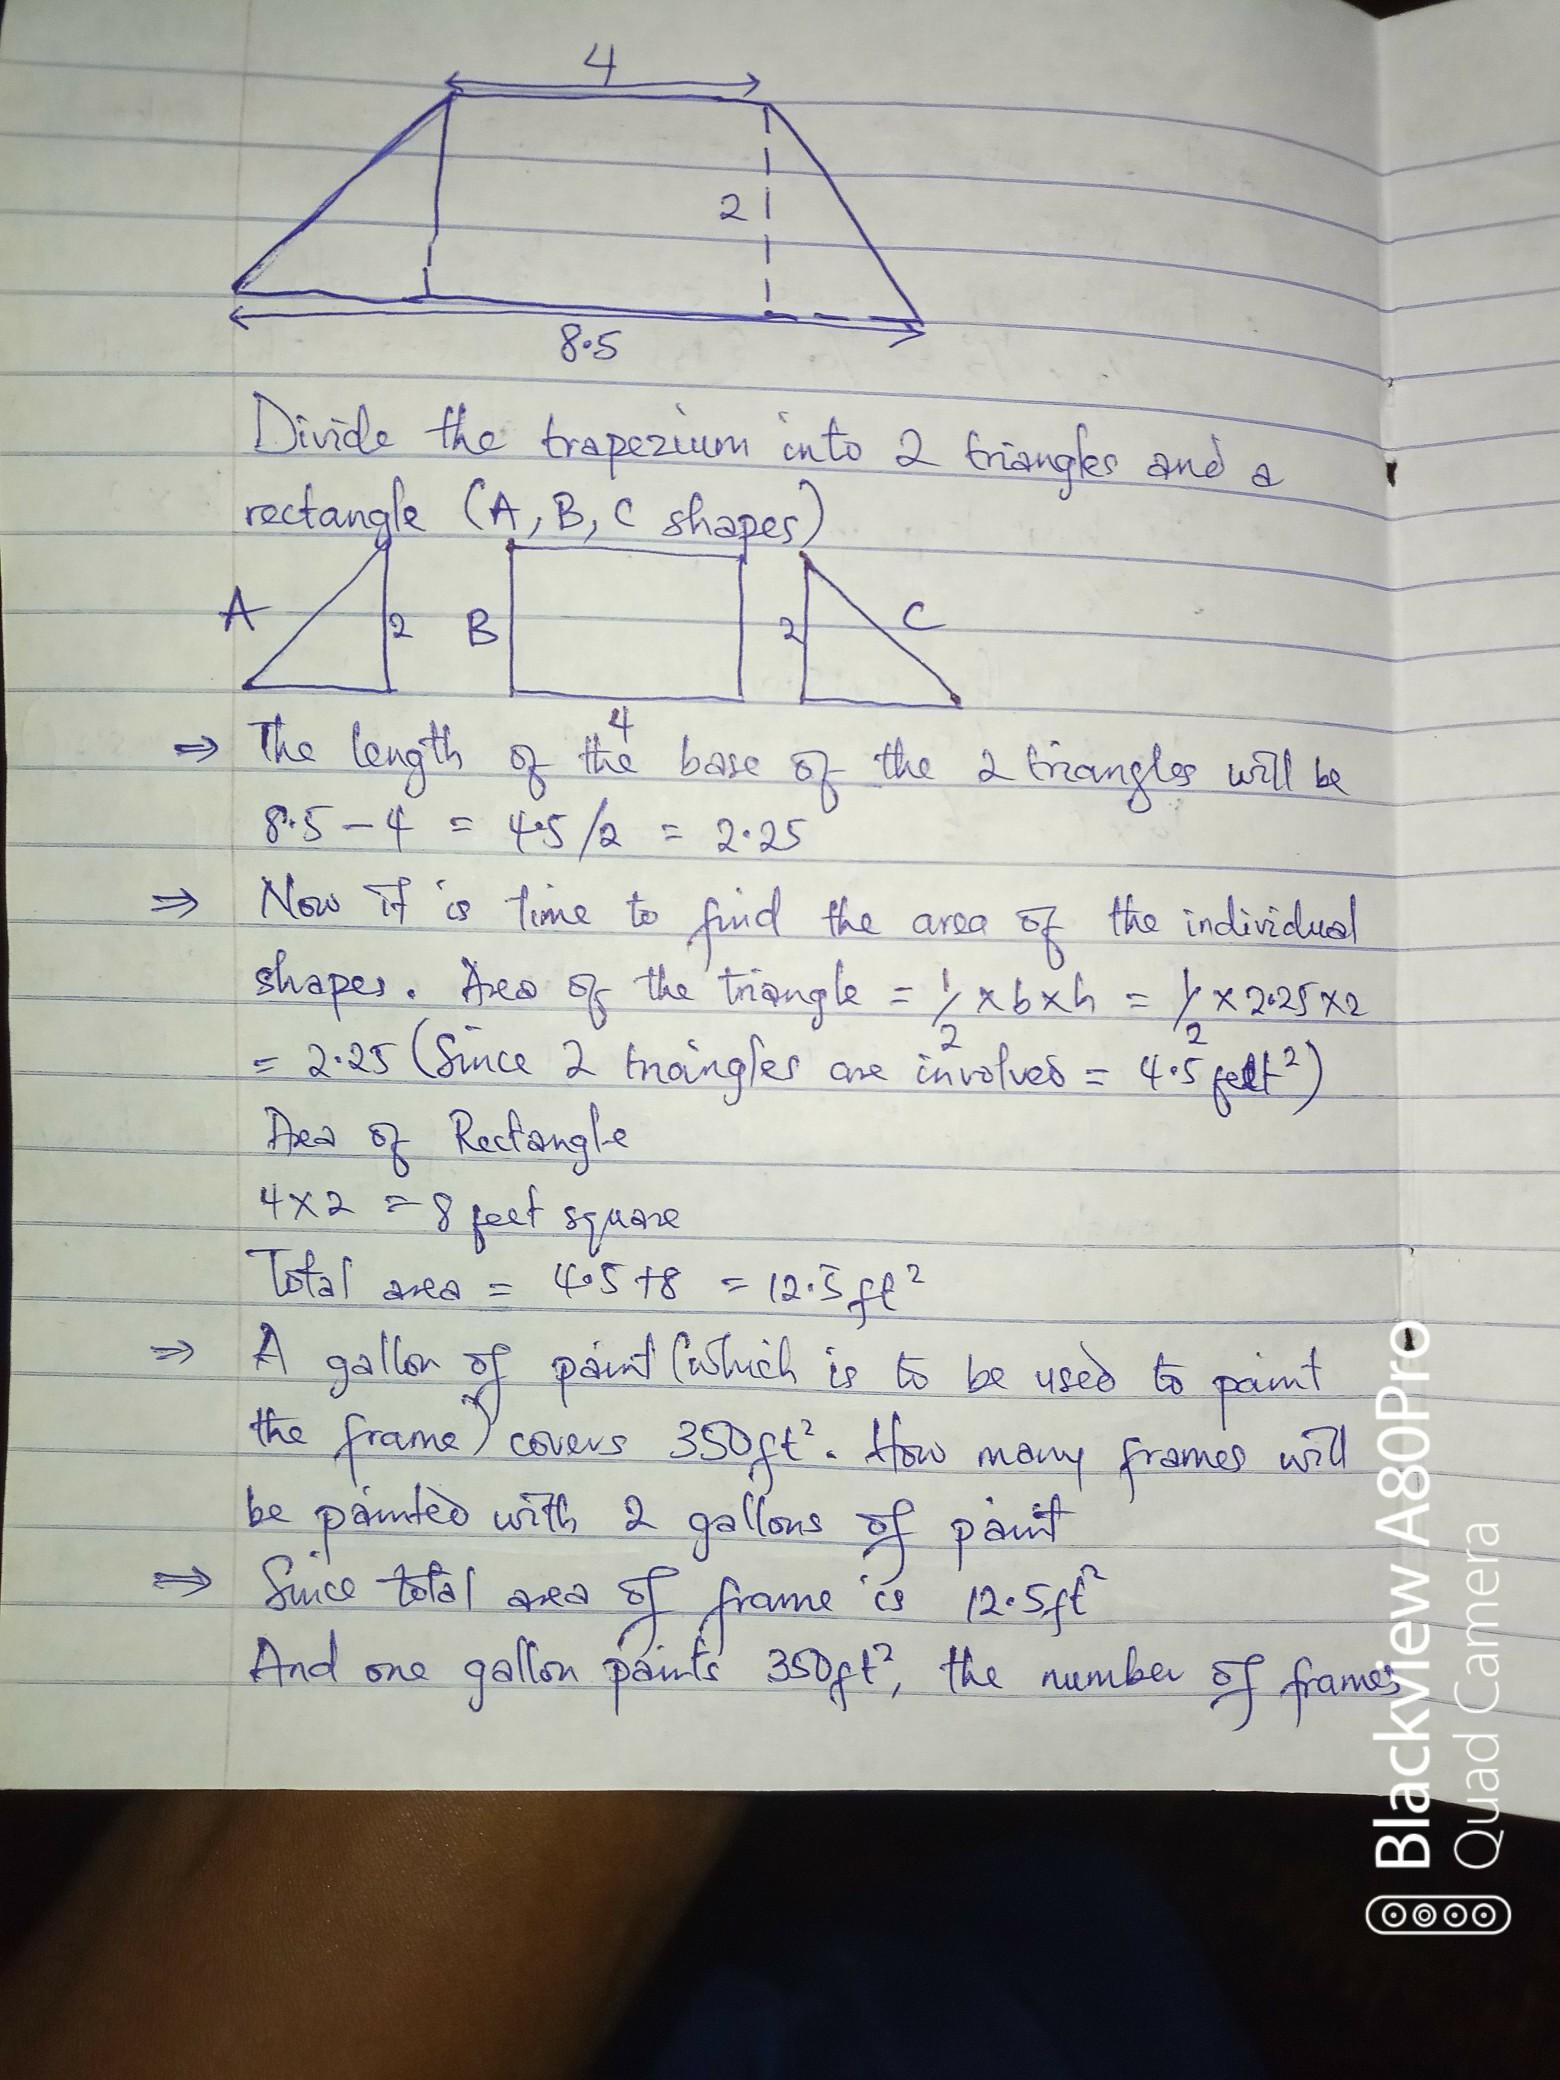 4
2
8.5
Divide the trapezium into 2 triangles and a
rectangle (A, B, C shapes)
A 2 B 4 2 C
⇒ The length of the base of the 2 triangles will be
8.5 - 4 = 4.5/2 = 2.25
⇒ Now it is time to find the area of the individual
shapes. Area of the triangle = 1/2 x b x h = 1/2 x 2.25 x 2
= 2.25 (Since 2 triangles are involved = 4.5 feet²)
Area of Rectangle
4 x 2 = 8 feet square
Total area = 4.5 + 8 = 12.5 ft²
⇒ A gallon of paint (which is to be used to paint
the frame) covers 350ft². How many frames will
be painted with 2 gallons of paint
⇒ Since total area of frame is 12.5ft²
And one gallon paints 350ft², the number of frames
Blackview A80Pro
Quad Camera